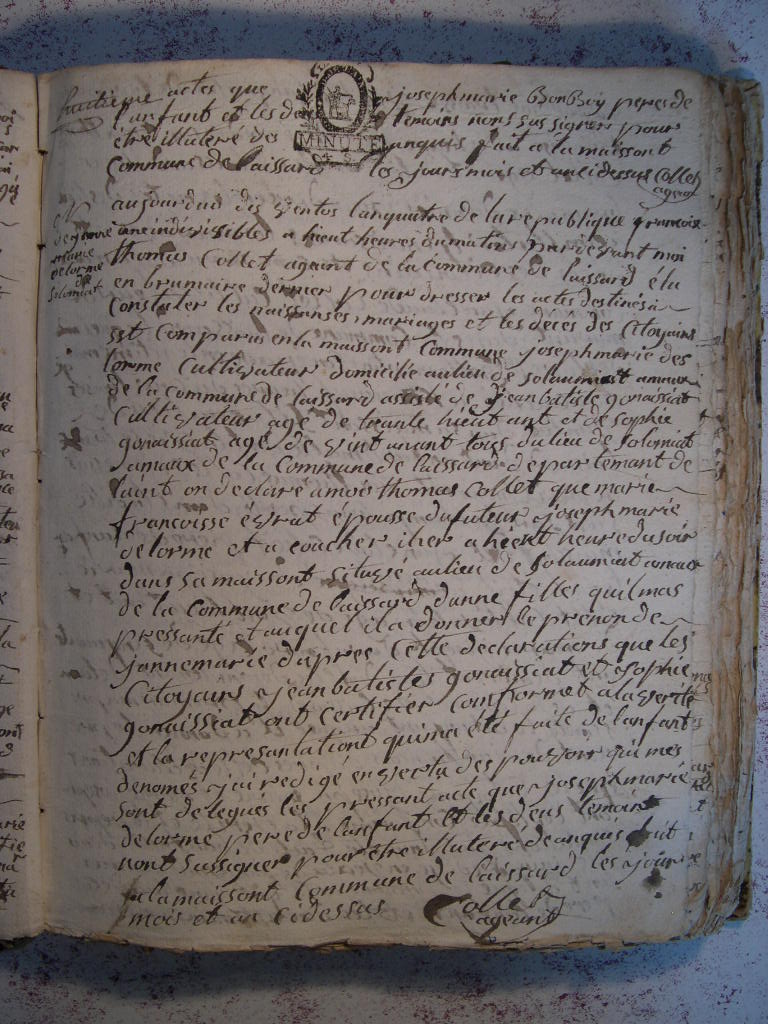 huitieme actes que josephmarie BonBoy peres de
lanfant et les de temoins nons sus signer pour
être illuteré des anquis fait a la maissont
MINUTE
Commune de laissard les jours mois et an ci dessus Collet
ageant
aujourduis dix ventos lanquatre de la republique francoise
de janne
marie
delorme
de
Solomiat
une indivisibles a hient heures du matins par devant moi
thomas Collet ageant de la commune de laissard élu
en brumaire dernier pour dresser les actes destinés a
Constater les naissenses mariages et les décés des Citoyains
est Comparus en la maissont Commune josephmarie des
lorme Cultivateur domicilié au lieu de solaumiat
de la commune de laissard assisté de jeanbatiste gonaissiat
Cultivateur agé de trante hieut ant et de Sophie
gonaissiat agé de vint un ant tous du lieu de solomiat
amaux de la Commune de laissard departemant de
laint on declaré a mois thomas Collet que marie
francoisse évrat épousse du futeur josephmarie
delorme et a coucher iher a hieut heure du soir
dans sa maissont situyé au lieu de Solaumiat
de la Commune de laissard dunne filles quil mas
pressanté et auquel il a donner le prenon de
jannemarie dapres Cette declarations que les
Citoyains jeanbatistes gonaissiat et Sophie
gonaissiat ont Certifier Conformet a la verité
et la represantationt qui ma été faite de lanfant
denomés jai redigé en vertu des pouvoir qui mes
sont delegues les pressant acte que josephmarie
delorme pere de lanfant et les deus temoint
nont Sussigner pour être illuteré de anquis fait
a la maissont Commune de laissard les jour
mois et an cidessus Collet
ageant